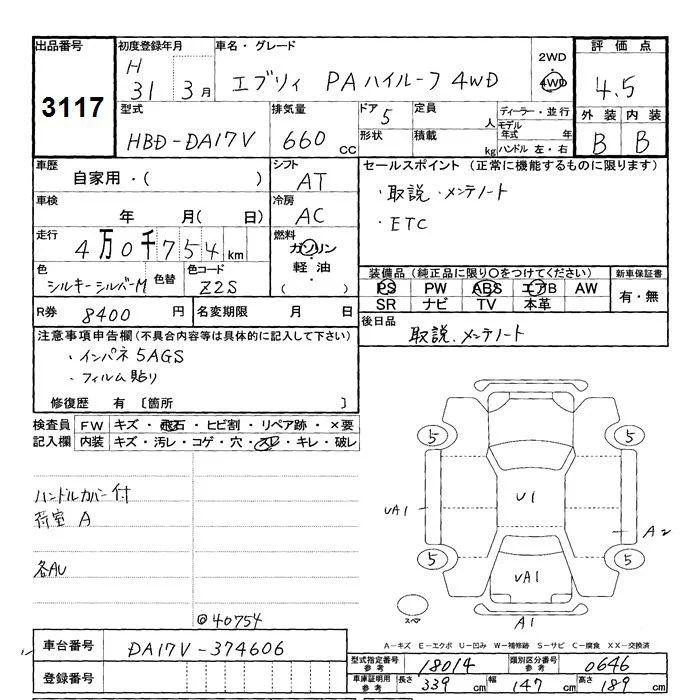 出品番号
3117
初度登録年月
H 31 3月
車名・グレード
エブリィ PAハイルーフ 4WD
2WD
4WD
評価点
4.5
外装 内装
B B
型式
HBD-DA17V
排気量
660 CC
ドア 5
定員 人
形状
積載 kg
ディーラー・並行
モデル年式 年
ハンドル 左・右
車歴
自家用・( )
シフト
AT
セールスポイント (正常に機能するものに限ります)
・取説・メンテノート
・ETC
車検
年 月( 日)
冷房
AC
走行
4万0千754km
燃料
ガソリン
軽油
・( )
色
シルキーシルバーM
色替
色コード
Z2S
装備品 (純正品に限り○をつけてください)
PS PW ABS エアB AW
SR ナビ TV 本革
新車保証書
有・無
R券 8400 円
名変期限 月 日
後日品
取説.メンテノート
注意事項申告欄(不具合内容等は具体的に記入して下さい)
・インパネ 5AGS
・フィルム貼り
修復歴 有〔箇所 〕
検査員記入欄
FW キズ・飛石・ヒビ割・リペア跡・×要
内装 キズ・汚レ・コゲ・穴・スレ・キレ・破レ
ハンドルカバー付
荷室 A
各AU
@40754
5 5
UA1 U1 A2
5 5
UA1
スペ
A1
A-キズ E-エクボ U-凹み W-補修跡 S-サビ C-腐食 XX-交換済
車台番号
DA17V-374606
登録番号
型式指定番号参考
18014
類別区分番号参考
0646
車庫証明用参考
長さ 339 cm
幅 147 cm
高さ 189 cm